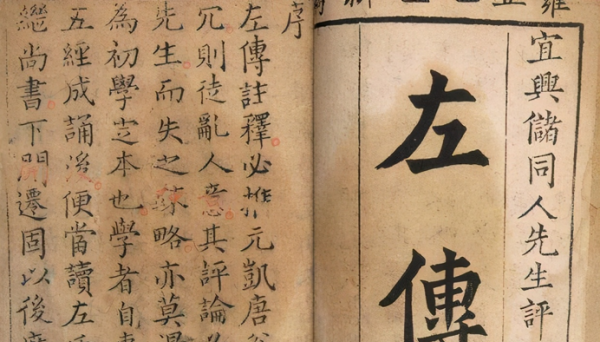 宜興儲同人先生評
左傳
序
左傳註釋必推元凱唐
冗則徒亂人意其評論
先生而失之疎略亦莫
為初學定本也學者自
五經成誦後便當讀左
繼尚書下開遷固以後